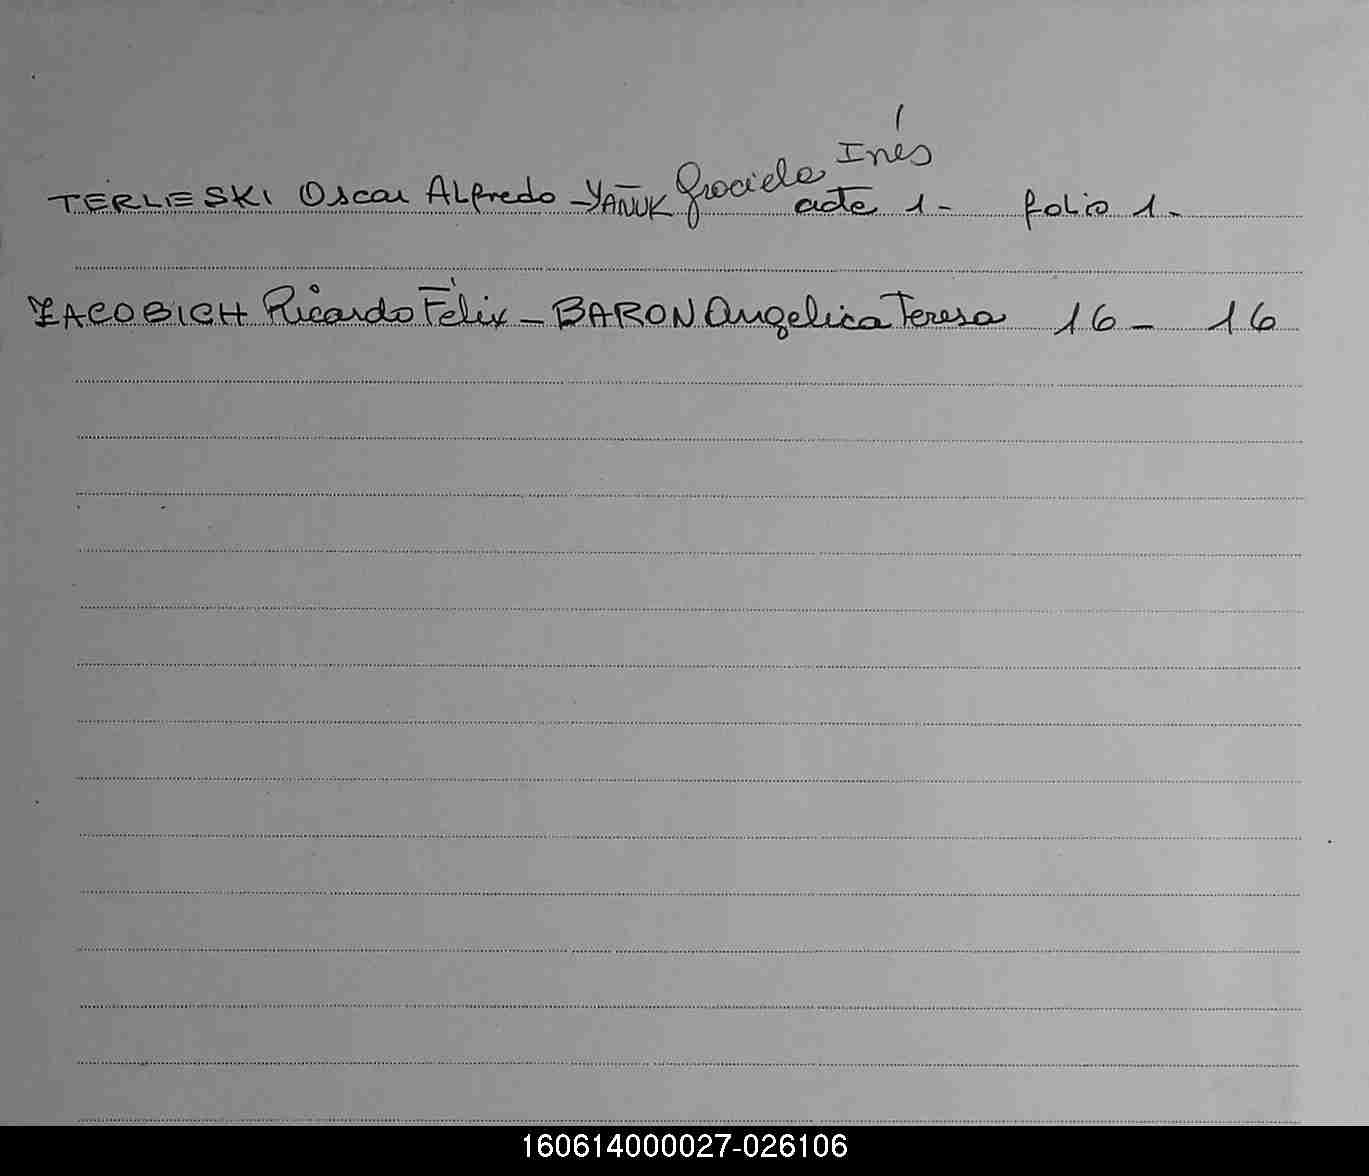 TERLIESKI Oscar Alfredo - YAÑUK Graciela Inés acta 1 - folio 1.
ZACOBICH Ricardo Félix - BARON Angelica Teresa 16 - 16
160614000027-026106